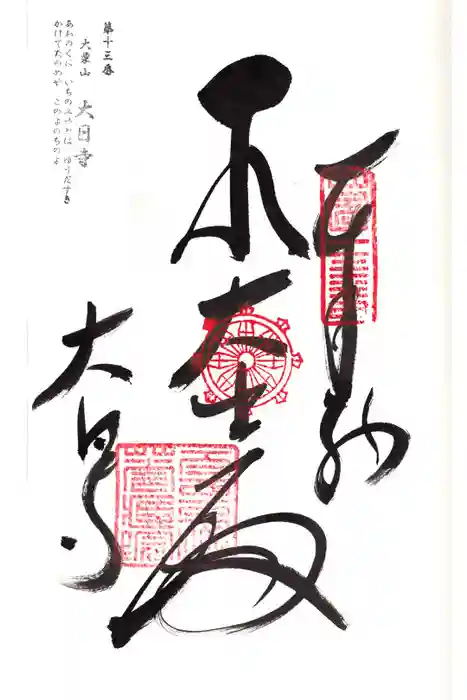 奉納
大士殿
大日寺
第十三番
大栗山 大日寺
あわのくに いちのみやとは ゆうだすき
かけてたのめや このよのちのよ